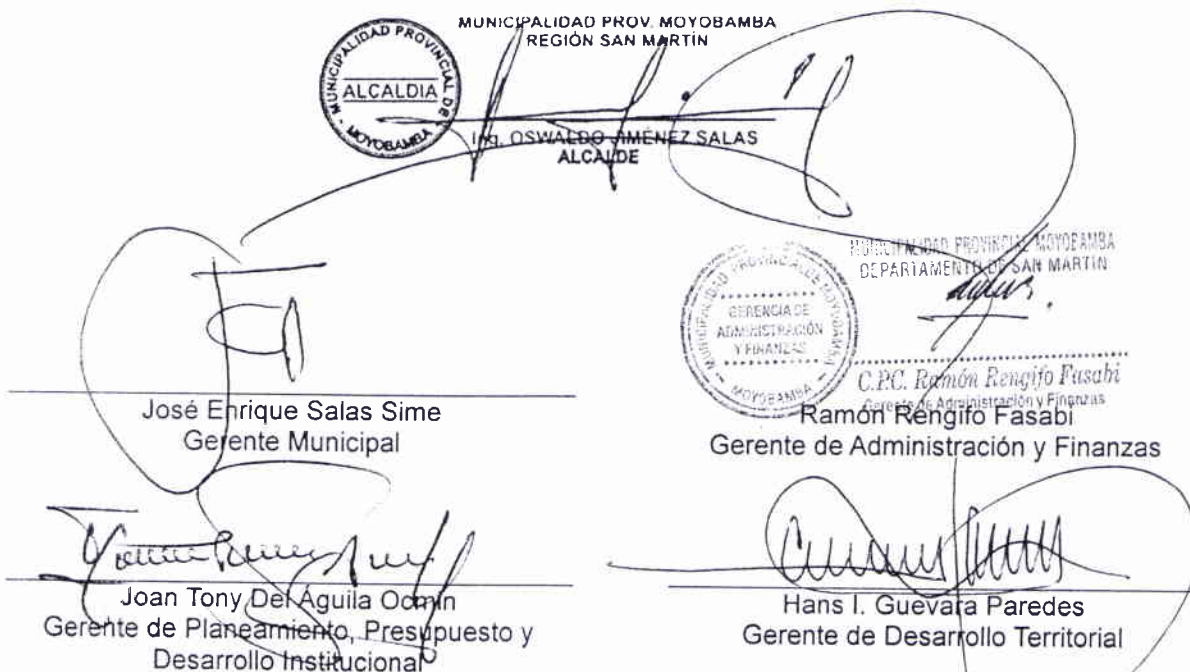 MUNICIPALIDAD PROV. MOYOBAMBA
REGIÓN SAN MARTÍN
MUNICIPALIDAD PROVINCIAL DE
ALCALDIA
MOYOBAMBA
Ing. OSWALDO JIMÉNEZ SALAS
ALCALDE
MUNICIPALIDAD PROVINCIAL MOYOBAMBA
DEPARTAMENTO DE SAN MARTIN
MUNICIPALIDAD PROVINCIAL DE MOYOBAMBA
GERENCIA DE
ADMINISTRACIÓN
Y FINANZAS
MOYOBAMBA
C.P.C. Ramón Rengifo Fasabi
Gerente de Administración y Finanzas
José Enrique Salas Sime
Gerente Municipal
Ramón Rengifo Fasabi
Gerente de Administración y Finanzas
Joan Tony Del Águila Ocmin
Gerente de Planeamiento, Presupuesto y
Desarrollo Institucional
Hans I. Guevara Paredes
Gerente de Desarrollo Territorial